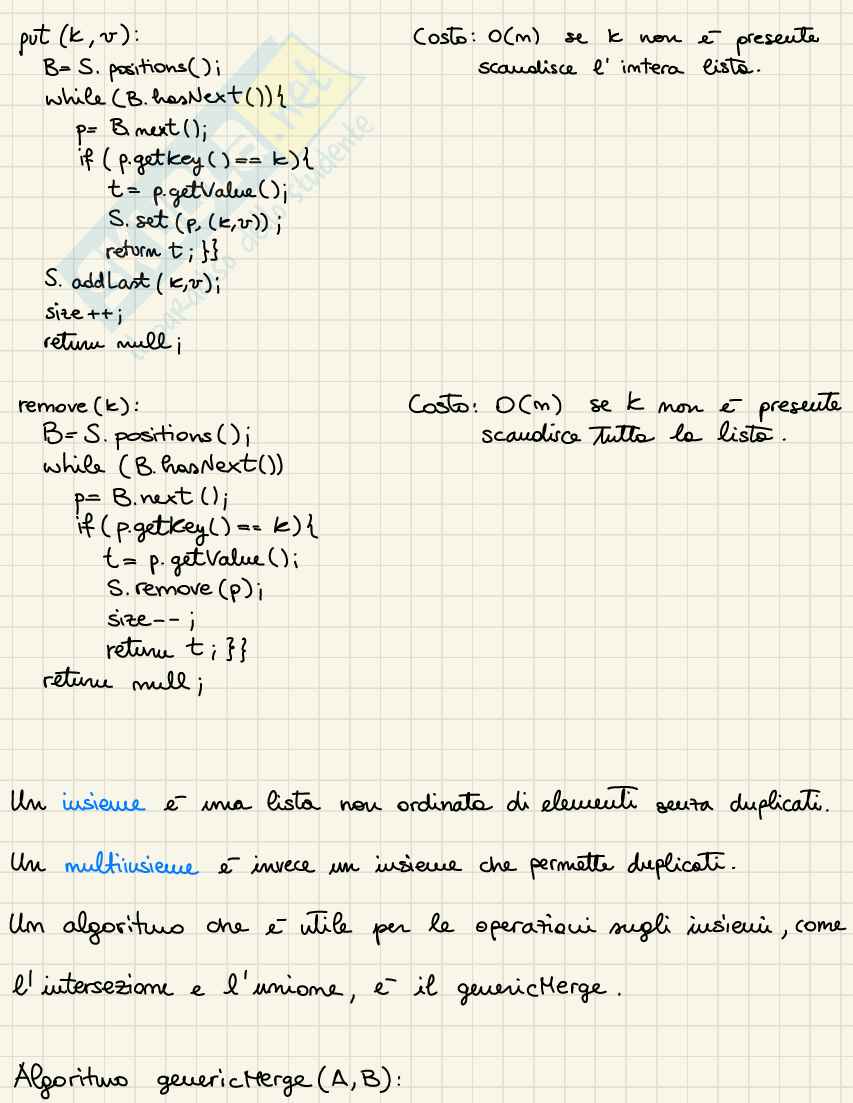 put (k, v):
Costo: O(n) se k non è presente
B= S. positions();
scandisce l'intera lista.
while (B.hasNext()){
p= B.next();
if (p.getKey() == k){
t= p.getValue();
S. set (p, (k,v));
return t; }}
S. addLast (k,v);
size ++;
return null;
remove (k):
Costo: O(n) se k non è presente
B= S. positions();
scandisce tutta la lista.
while (B.hasNext())
p= B.next ();
if (p.getKey() == k){
t= p.getValue();
S. remove (p);
size-- ;
return t; }}
return null;
Un insieme è una lista non ordinata di elementi senza duplicati.
Un multiinsieme è invece un insieme che permette duplicati.
Un algoritmo che è utile per le operazioni sugli insiemi, come
l'intersezione e l'unione, è il genericMerge.
Algoritmo genericMerge (A,B):